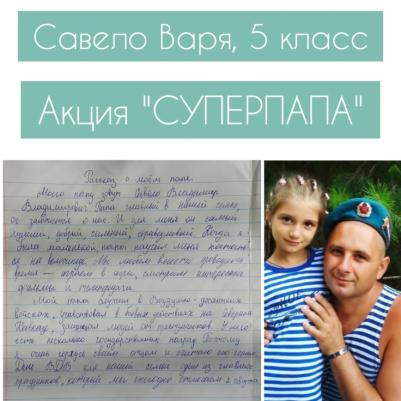 Савело Варя, 5 класс
Акция "СУПЕРПАПА"
Рассказ о моём папе.
Моего папу зовут Савело Владимир
Владимирович. Папа главный в нашей семье,
он заботится о нас. И для меня он самый
лучший, добрый, сильный, справедливый. Когда я
была маленькой, папа научил меня кататься
ся на велосипеде. Мы любим вместе проводить
время — играем в игры, смотрим интересные
фильмы и телепередачи.
Мой папа служил в Воздушно-десантных
войсках, участвовал в боевых действиях на Северном
Кавказе, защищал людей от преступников. У него
есть несколько государственных наград. Поэтому
я очень горжусь своим отцом и считаю его героем.
День ВДВ для нашей семьи один из главных
праздников, который мы ежегодно отмечаем 2 августа.